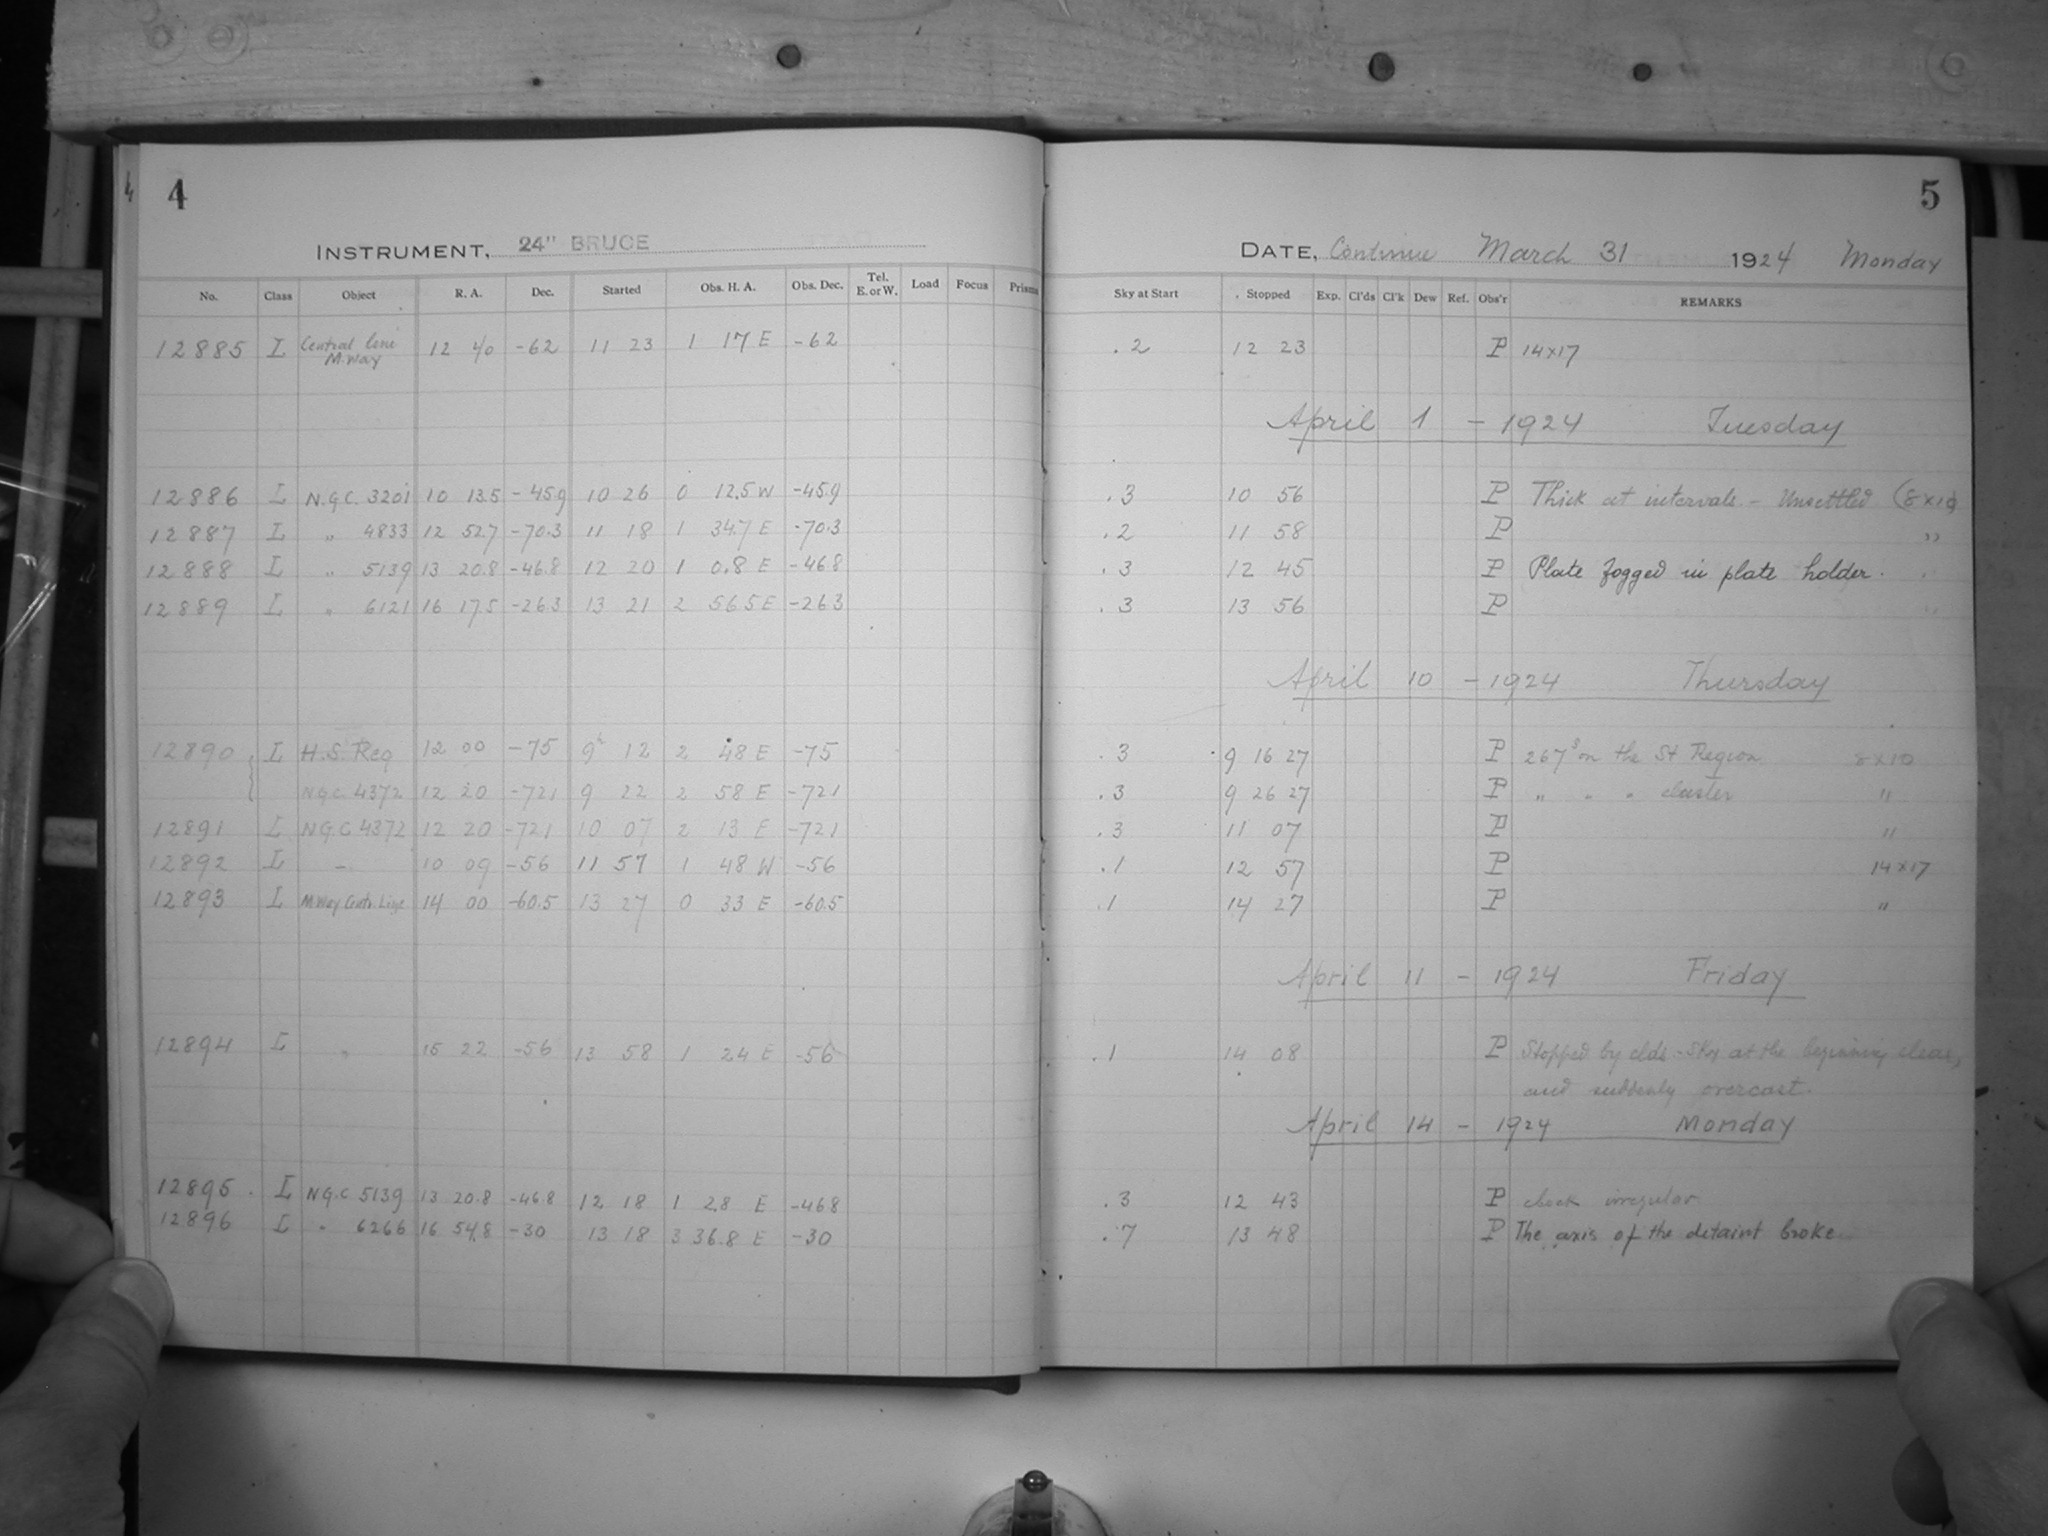 4
INSTRUMENT, 24" BRUCE
No. Class Object R. A. Dec. Started Obs. H. A. Obs. Dec. Tel. E. or W. Load Focus Prisms
12885 I Central line M.Way 12 40 -62 11 23 1 17 E -62
12886 I N.G.C. 3201 10 13.5 -45.9 10 26 0 12.5 W -45.9
12887 I " 4833 12 52.7 -70.3 11 18 1 34.7 E -70.3
12888 I " 5139 13 20.8 -46.8 12 20 1 0.8 E -46.8
12889 I " 6121 16 17.5 -26.3 13 21 2 56.5 E -26.3
12890 I H.S. Reg 12 00 -75 9h 12 2 48 E -75
N.G.C. 4372 12 20 -721 9 22 2 58 E -721
12891 I N.G.C 4372 12 20 -721 10 07 2 13 E -721
12892 I - 10 09 -56 11 57 1 48 W -56
12893 I M.Way Centr. Line 14 00 -60.5 13 27 0 33 E -60.5
12894 I " 15 22 -56 13 58 1 24 E -56
12895 . I N.G.C 5139 13 20.8 -46.8 12 18 1 2.8 E -468
12896 I " 6266 16 54.8 -30 13 18 3 36.8 E -30
5
DATE, Continue March 31 1924 Monday
Sky at Start Stopped Exp. Cl'ds Cl'k Dew Ref. Obs'r REMARKS
.2 12 23 P 14x17
April 1 - 1924 Tuesday
.3 10 56 P Thick at intervals. - Unsettled (8x10
.2 11 58 P "
.3 12 45 P Plate fogged in plate holder. "
.3 13 56 P "
April 10 - 1924 Thursday
.3 9 16 27 P 267s on the St Region 8x10
.3 9 26 27 P " " " cluster "
.3 11 07 P "
.1 12 57 P 14x17
.1 14 27 P "
April 11 - 1924 Friday
.1 14 08 P Stopped by clds - Sky at the beginning clear,
and suddenly overcast.
April 14 - 1924 Monday
.3 12 43 P clock irregular
.7 13 48 P The axis of the detaint broke.